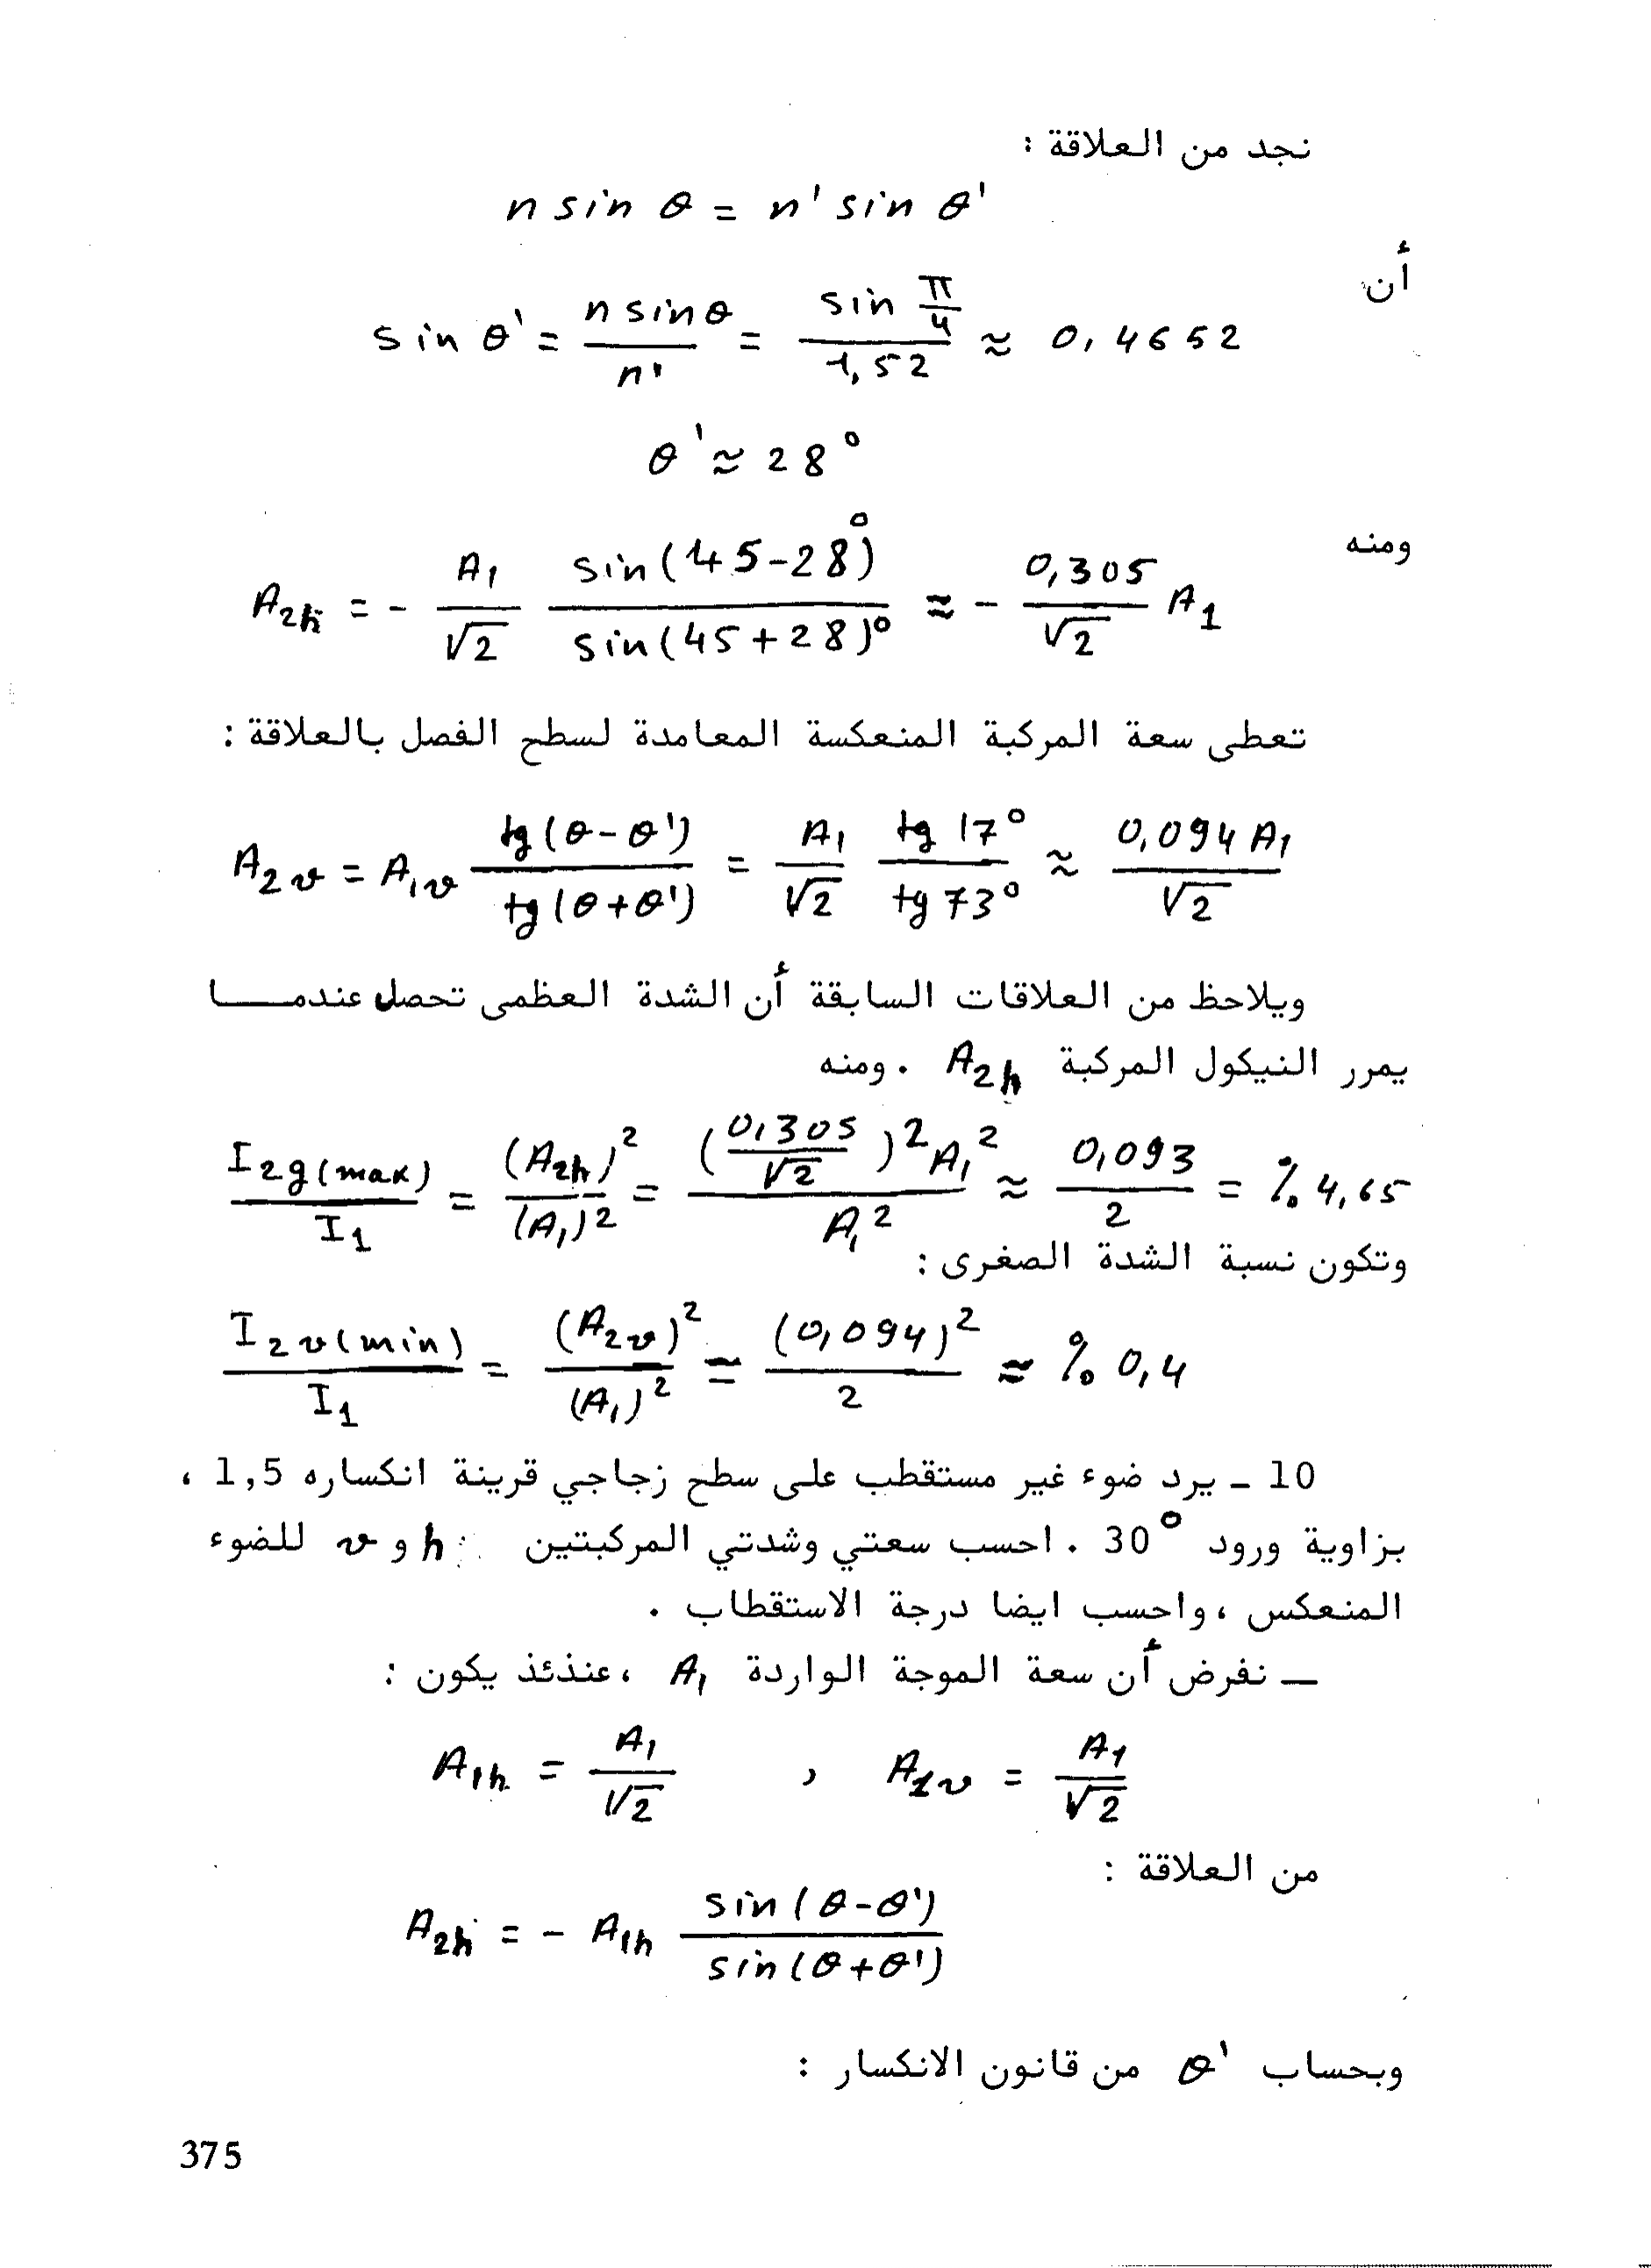 نجد من العلاقة :
n sin θ = n' sin θ'
أن
sin θ' = n sin θ / n' = sin π/4 / 1,52 ≈ 0,4652
θ' ≈ 28°
ومنه
A2h = - A1/√2 sin(45-28)° / sin(45+28)° ≈ - 0,305/√2 A1
تعطى سعة المركبة المنعكسة المعامدة لسطح الفصل بالعلاقة :
A2v = A1v tg(θ-θ') / tg(θ+θ') = A1/√2 tg 17° / tg 73° ≈ 0,094 A1 / √2
ويلاحظ من العلاقات السابقة أن الشدة العظمى تحصل عندمـــا
يمرر النيكول المركبة A2h . ومنه
I2g(max) / I1 = (A2h)² / (A1)² = (0,305/√2)² A1² / A1² ≈ 0,093 / 2 = % 4,65
وتكون نسبة الشدة الصغرى :
I2v(min) / I1 = (A2v)² / (A1)² ≃ (0,094)² / 2 ≈ % 0,4
10 - يرد ضوء غير مستقطب على سطح زجاجي قرينة انكساره 1,5 ،
بزاوية ورود 30° . احسب سعتي وشدتي المركبتين h و v للضوء
المنعكس ، واحسب ايضا درجة الاستقطاب .
— نفرض أن سعة الموجة الواردة A1 ، عندئذ يكون :
A1h = A1/√2 , A1v = A1/√2
من العلاقة :
A2h = - A1h sin(θ-θ') / sin(θ+θ')
وبحساب θ' من قانون الانكسار :
375